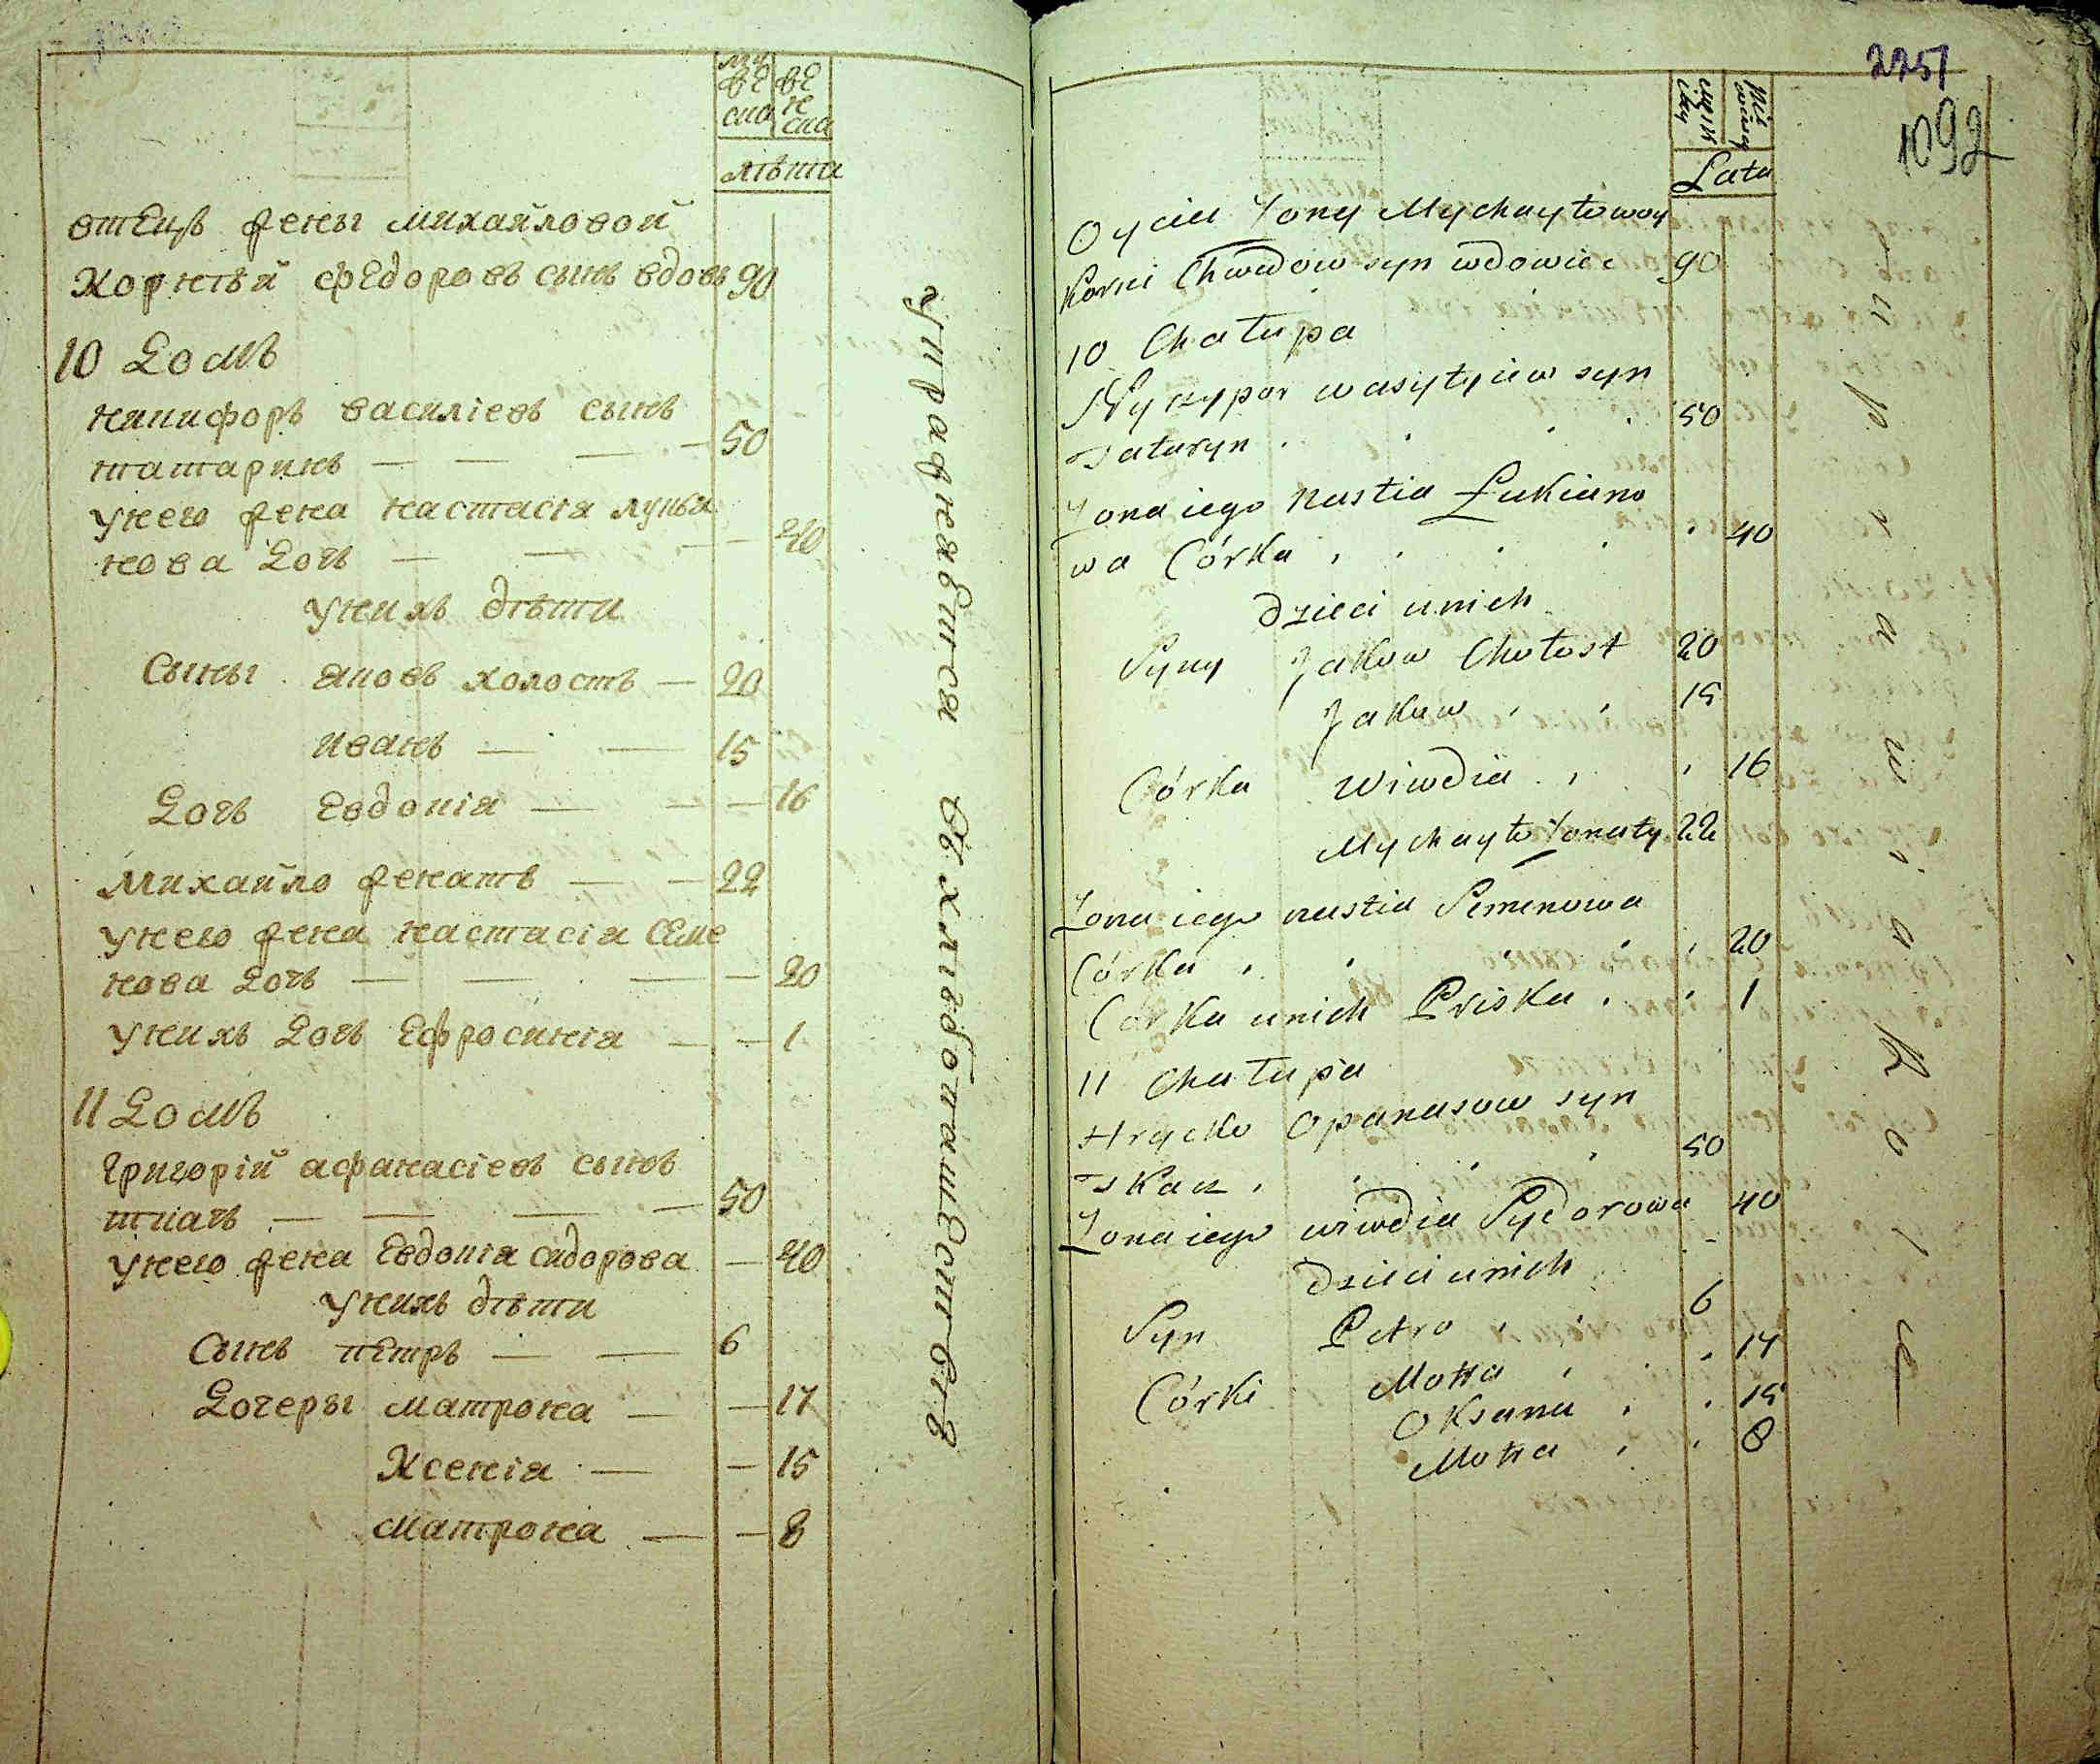 му
веска
женска
лѣта
отецъ жены михайловой
Корнѣй федоровъ сынъ вдовъ 90
10 Домъ
никифоръ василіевъ сынъ
татаринъ — — — — 50
у него жена настасія лукья
нова дочь — — — 40
у нихъ дѣти
сыны яковъ холостъ — 20
иванъ — — 15
Дочь Евдокія — — — 16
Михайло женатъ — — 22
у него жена настасія Семе
нова дочь — — — — 20
у нихъ дочь Ефросинія — — 1
11 Домъ
Григорій афанасіевъ сынъ
ткачь — — — — 50
у него жена Евдокія сидорова — 40
у нихъ дѣти
Сынъ петръ — — 6
Дочеры матрона — — 17
Ксенія — — 15
матрона — — 8
упражняется въ хлѣбопашествѣ
2251
1092
Lata
Oyciec Żony Mychayłowoy
Korni Chwedow syn wdowiec 90
10 Chałupa
Nykypor wasylyiew syn
Tataryn 50
Żona iego nastia Łukiano
wa Córka 40
Dzieci u nich
Syny Jakow Chołost 20
Jakow 15
Córka Wiwdia 16
Mychayło Żonaty 22
Żona iego nastia Semenowa
Córka 20
Córka u nich Priska 1
11 Chałupa
Hrycko Opanasow syn
Tkacz 50
Żona iego wiwdia Sydorowa 40
Dzieci u nich
Syn Petro 6
Córki Motra 17
Oksana 15
Motra 8